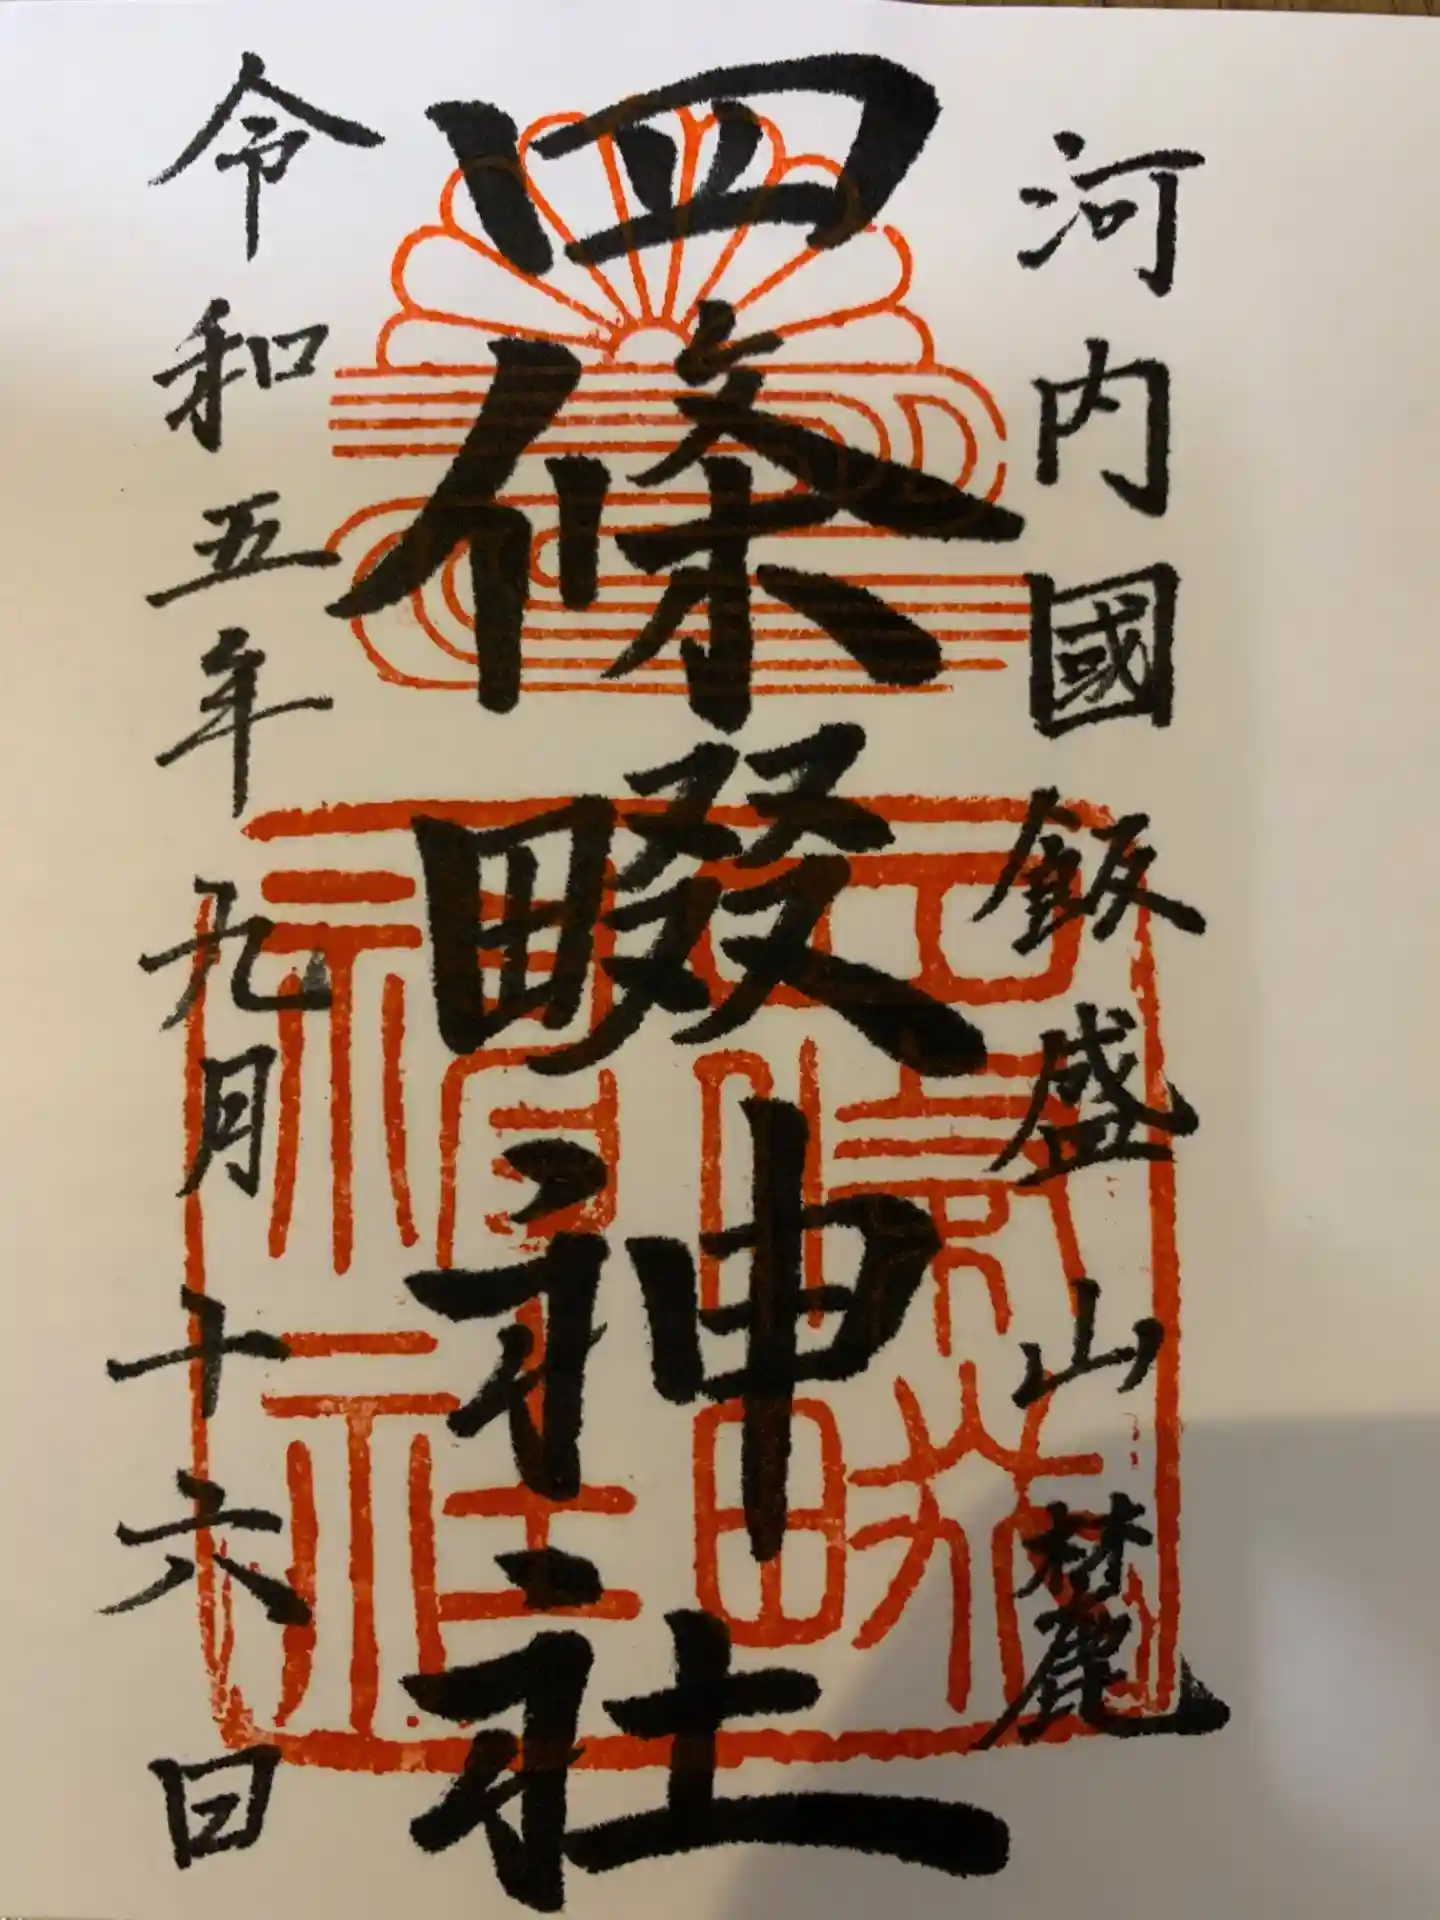 河内國飯盛山麓
四條畷神社
令和五年九月十六日
四條畷神社